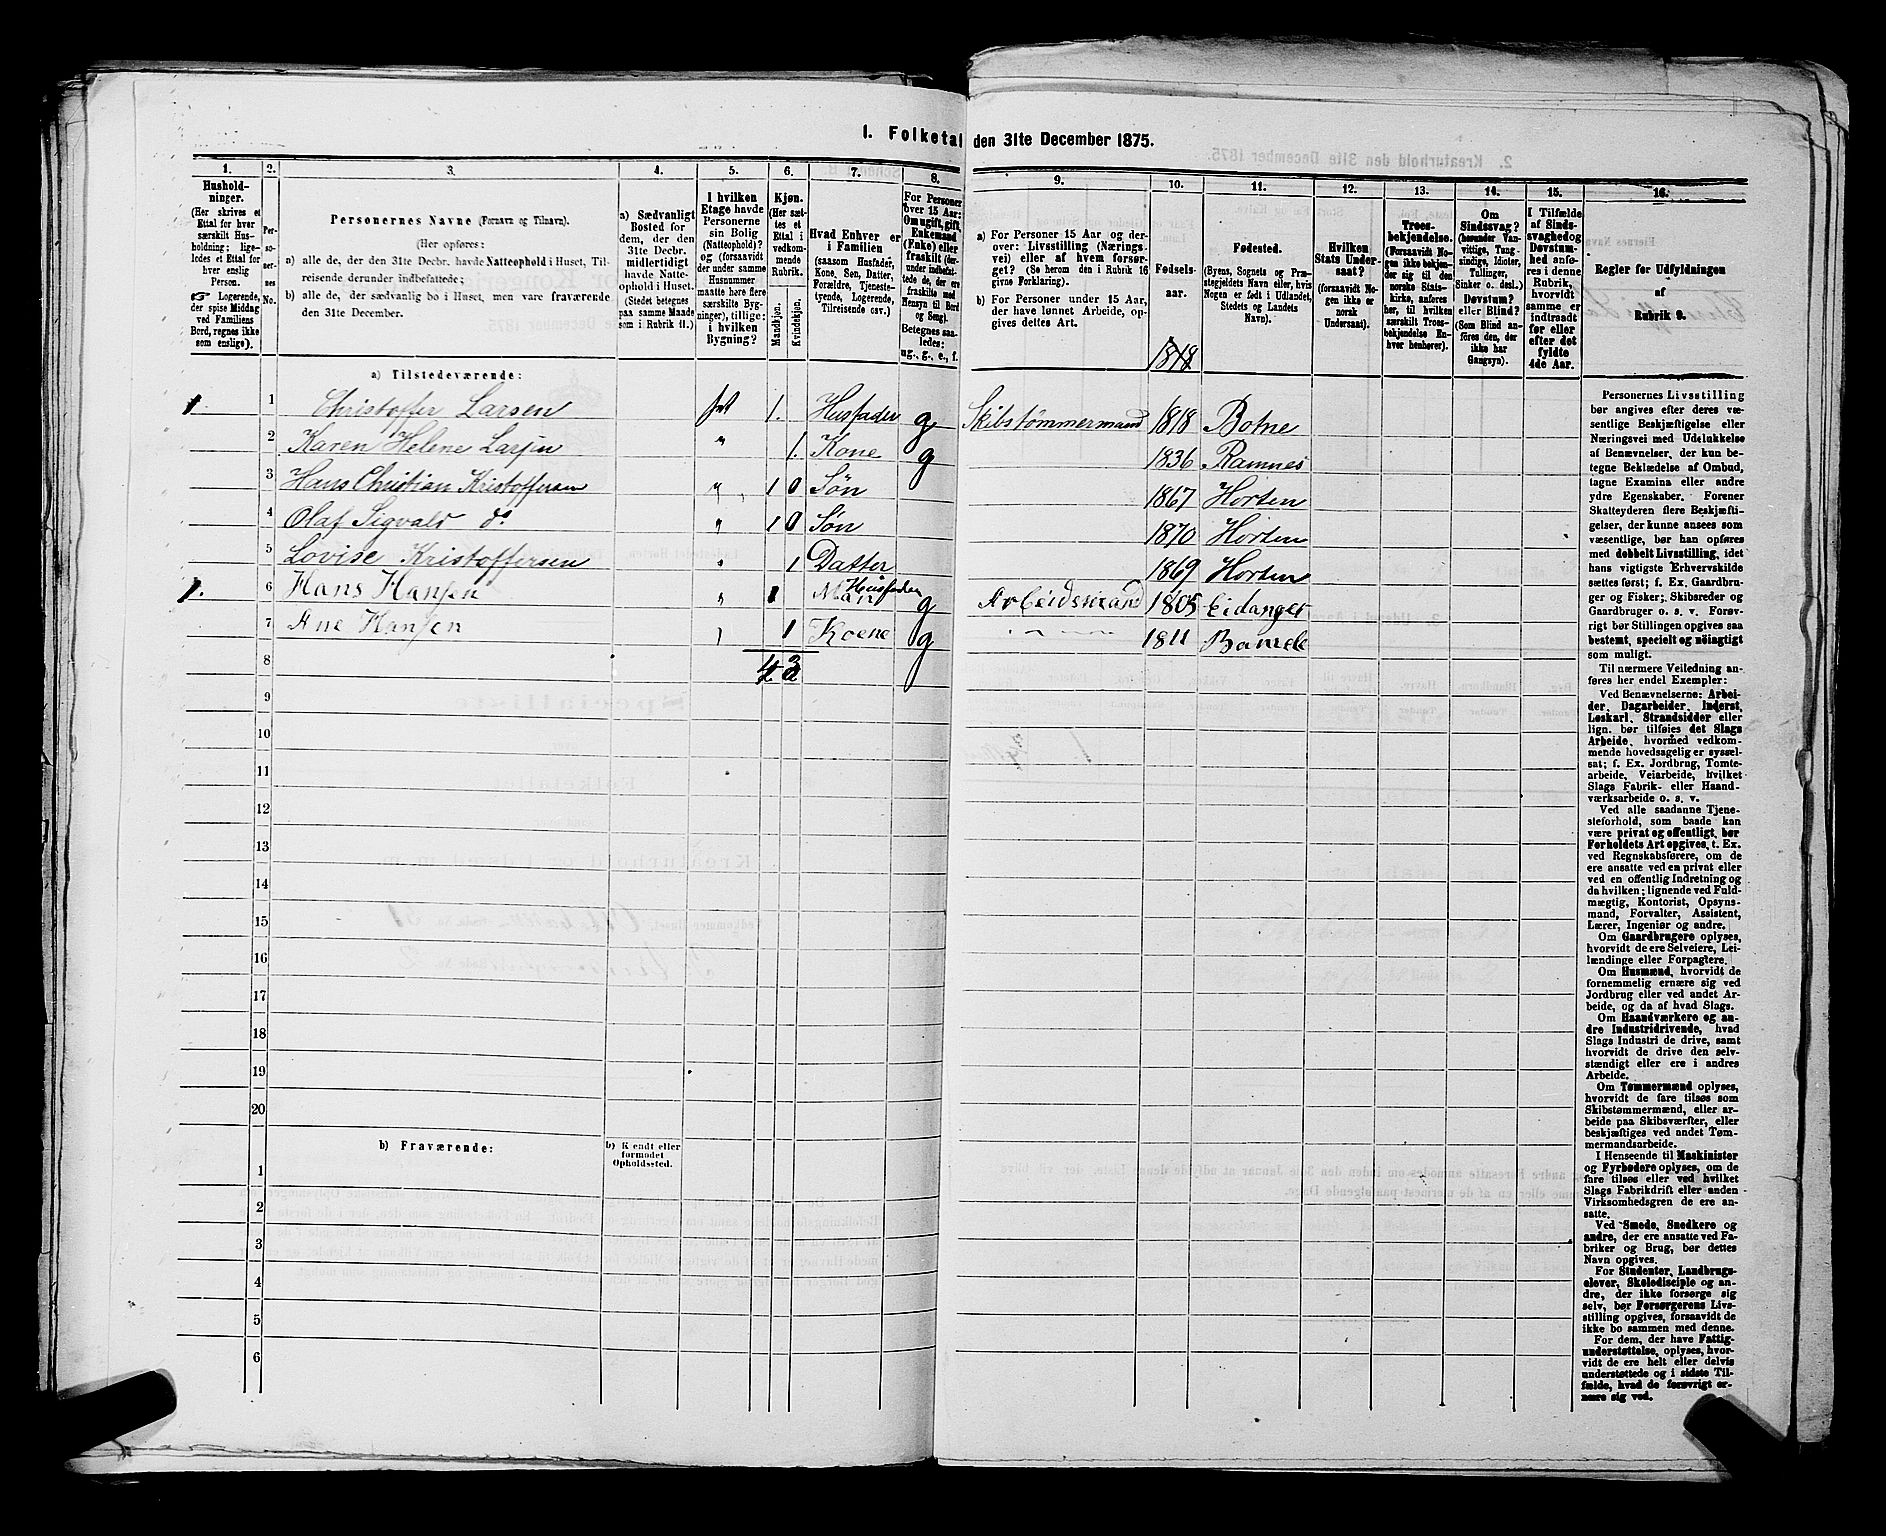 1. Folketal den 31te December 1875.
1.
Husholdninger.
(Her skrives et
Ettal for hver
særskilt Husholdning; ligeledes et Ettal for
hver enslig
Person.
Logerende,
der spise Middag
ved Familiens
Bord, regnes ikke
som enslige).
2.
Personernes No.
3.
Personernes Navne (Fornavn og Tilnavn).
(Her opføres:
a) alle de, der den 31te Decbr. havde Natteophold i Huset, Tilreisende derunder indbefattede;
b) alle de, der sædvanlig bo i Huset, men vare fraværende
den 31te December.
4.
a) Sædvanligt
Bosted for
dem, der den
31te Decbr.
midlertidigt
havde Natteophold i Huset.
(Stedet betegnes
paa samme Maade
som i Rubrik 11.)
5.
I hvilken
Etage havde
Personerne
sin Bolig
(Natteophold)?
og (forsaavidt
der under samme
Husnummer
maatte høre flere
særskilte Bygninger), tillige:
i hvilken
Bygning?
6.
Kjøn.
(Her sættes et
Ettal i
vedkommende
Rubrik.
Mandkjøn.
Kvindekjøn.
7.
Hvad Enhver er
i Familien
(saasom Husfader,
Kone, Søn, Datter,
Forældre, Tjenestetyende, Logerende,
Tilreisende osv.)
8.
For Personer
over 15 Aar:
Om ugift, gift,
Enkemand
(Enke) eller
fraskilt
Betegnes saaledes:
ug., g., e., f.
9.
a) For Personer 15 Aar og derover: Livsstilling (Næringsvei) eller af hvem forsørget? (Se herom den i Rubrik 16
givne Forklaring).
b) For Personer under 15 Aar,
der have lønnet Arbeide, opgives dettes Art.
10.
Fødselsaar.
1818
11.
Fødested.
(Byens, Sognets og Præstegjeldets Navn eller, hvis
Nogen er født i Udlandet,
Stedets og Landets
Navn).
12.
Hvilken
Stats Undersaat?
(forsaavidt Nogen ikke er
norsk
Undersaat).
13.
Troesbekjendelse.
(Forsaavidt Nogen ikke bekjender sig til den
norske Statskirke, anføres
her, til hvilken
særskilt Troesbekjendelse Enhver henhører).
14.
Om
Sindssvag?
(herunder Vanvittige, Tungsindige, Idioter,
Tullinger,
Sinker o. desl.)
Døvstum?
eller Blind?
(Som Blind anføres den, der
ikke har
Gangsyn).
15.
I Tilfælde
af Sindssvaghed og
Døvstumhed anføres i denne
Rubrik,
hvorvidt
samme er
indtraadt
før eller
efter det
fyldte
4de Aar.
16.
Regler for Udfyldningen
af
Rubrik 9.
a) Tilstedeværende:
1. 1 Christoffer Larsen 1. Husfader g Skibstømmermand 1818 Botne
2 Karen Helene Larsen " 1. Kone g 1836 Ramnes
3 Hans Christian Kristoffersen " 1 0 Søn 1867 Horten
4 Olaf Sigvald do " 1 0 Søn 1870 Horten
5 Lovise Kristoffersen " 1 Datter 1869 Horten
1. 6 Hans Hansen " 1 Man Husfader g Arbeidsmand 1805 Eidanger
7 Ane Hansen " 1 Koene g 1811 Bamele
8 4 3
9
10
11
12
13
14
15
16
17
18
19
20
b) Fraværende:
b) Kendt eller
formodet
Opholdssted.
1
2
3
4
5
6
Personernes Livsstilling
bør angives efter deres væsentlige Beskjæftigelse eller
Næringsvei med Udelukkelse
af Benævnelser, der kun betegne Beklædelse af Ombud,
tagne Examina eller andre
ydre Egenskaber. Forener
Skatteyderen flere Beskjæftigelser, der kunne ansees som
væsentlige, bør han opføres
med dobbelt Livsstilling, idet
hans vigtigste Erhvervskilde
sættes først; f. Ex. Gaardbruger og Fisker; Skibsreder og
Gaardbruger o. s. v. Forøvrigt bør Stillingen opgives saa
bestemt, specielt og nöiagtigt
som muligt.
Til nærmere Veiledning anføres her endel Exempler:
Ved Benævnelserne: Arbeider, Dagarbeider, Inderst,
Løskarl, Strandsidder eller
lign. bør tilføies det Slags
Arbeide, hvormed vedkommende hovedsagelig er sysselsat; f. Ex. Jordbrug, Tomtearbeide, Veiarbeide, hvilket
Slags Fabrik- eller Haandværksarbeide o. s. v.
Ved alle saadanne Tjenesteforhold, som baade kan
være privat og offentligt, bør
Forholdets Art opgives, t. Ex.
ved Regnskabsførere, om de
ere ansatte ved en privat eller
ved en offentlig Indretning og
da hvilken; lignende ved Fuldmægtig, Kontorist, Opsynsmand, Forvalter, Assistent,
Lærer, Ingeniør og andre.
Om Gaardbrugere oplyses,
hvorvidt de ere Selveiere, Leilændinge eller Forpagtere.
Om Husmænd, hvorvidt de
fornemmelig ernære sig ved
Jordbrug eller ved andet Arbeide, og da af hvad Slags.
Om Haandværkere og andre Industridrivende, hvad
Slags Industri de drive, samt
hvorvidt de drive den selvstændigt eller ere i andres
Arbeide.
Om Tømmermænd oplyses,
hvorvidt de fare tilsøs som
Skibstømmermænd, eller arbeide paa Skibsværfter, eller
beskjæftiges ved andet Tømmermandsarbeide.
I Henseende til Maskinister
og Fyrbødere oplyses, om de
fare tilsøs eller ved hvilket
Slags Fabrikdrift eller anden
Virksomhedsgren de ere ansatte.
Ved Smede, Snedkere og
andre, der ere ansatte ved Fabriker og Brug, bør dettes
Navn opgives.
For Studenter, Landbrugselever, Skoledisciple og andre, der ikke forsørge sig
selv, bør Forsørgerens Livsstilling opgives, forsaavidt de
ikke bo sammen med denne.
For dem, der have Fattigunderstøttelse, oplyses, hvorvidt de ere helt eller delvis
understøttede og i sidste Tilfælde, hvad de forøvrigt ernære sig ved.